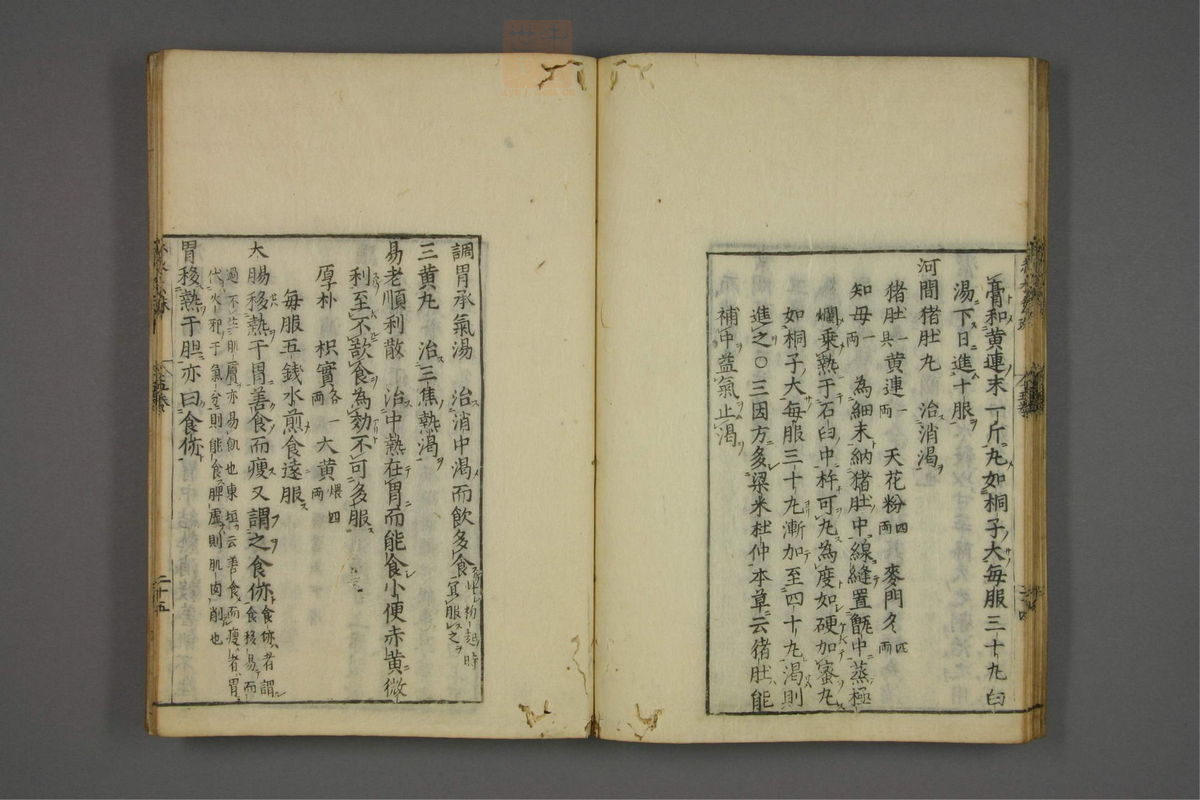 膏和黄連末一斤丸如桐子大毎服三十丸白
湯下日進十服
河間猪肚丸　治消渇
猪肚一具黄連一兩　天花粉四兩　麥門冬四兩
知母一兩　為細末納猪肚中線縫置甑中蒸極
爛乗熱于石臼中杵可丸為度如硬加蜜丸
如桐子大毎服三十丸漸加至四十丸渇則
進之〇三因方多梁米杜仲本草云猪肚能
補中益氣止渇
調胃承氣湯　治消中渇而飲多食此初起時宜服之
三黄丸　治三焦熱渇
易老順利散　治中熱在胃而能食小便赤黄微
利至不欲食為効不可多服
厚朴　枳實各一兩　大黄煨四兩
毎服五錢水煎食遠服
大腸移熱于胃善食而瘦又謂之食㑊食㑊者謂食移易而
過不生肌膚亦易飢也東垣云善食而瘦者胃
伏火邪于氣分則能食脾虚則肌肉削也
胃移熱于胆亦曰食㑊
二十五